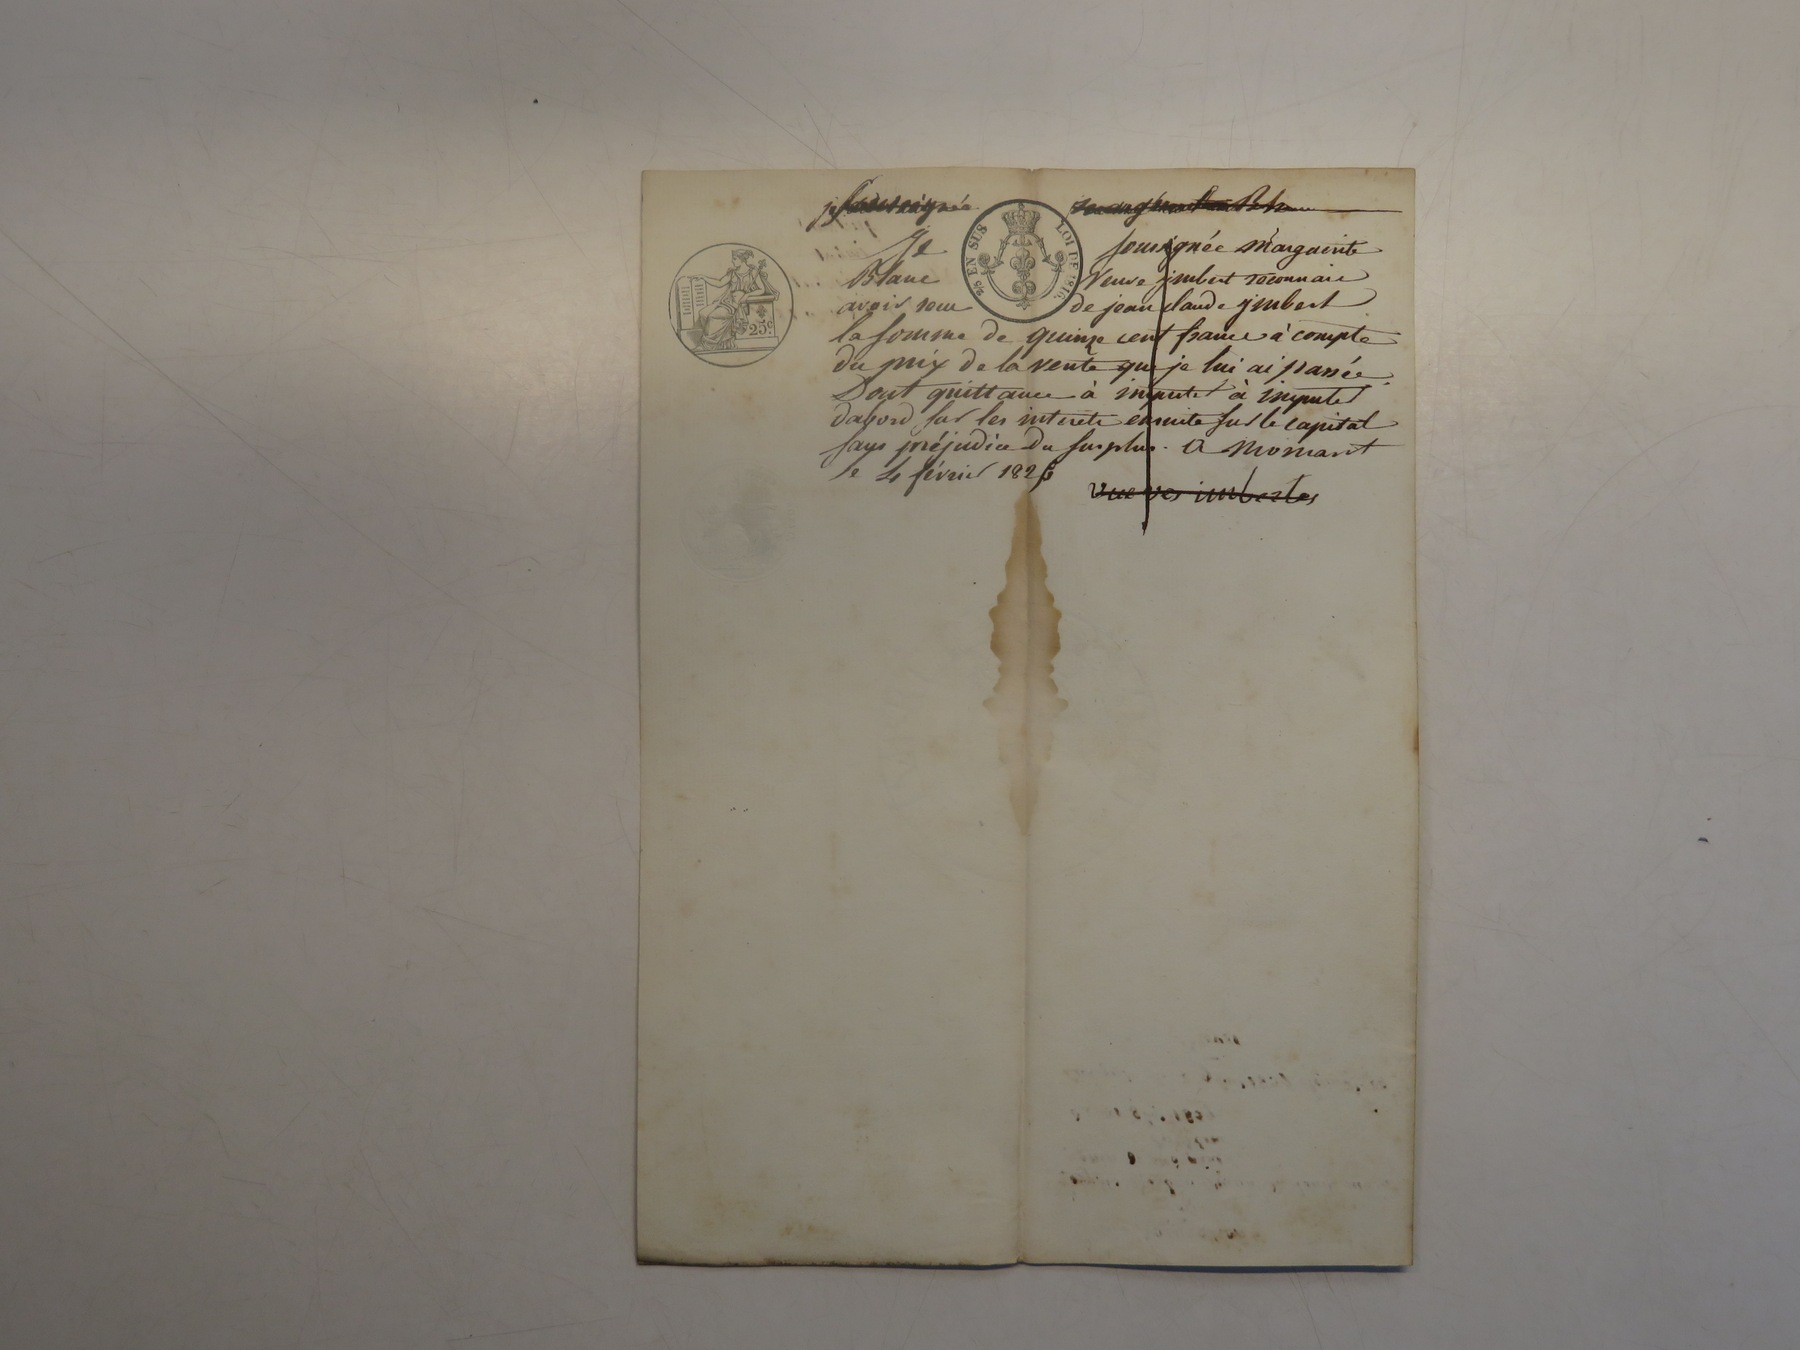 je soussignée marguerite Bla
Je soussignée Marguerite
Blanc Veuve jmbert reconnais
avoir recu de jean claude jmbert
la somme de quinze cent francs à compte
du prix de la vente que je lui ai passée
Dont quittance à imputer à imputer
dabord sur les interets ensuite sur le capital
sans préjudice du surplus. A Mornant
le 4 février 1826
vueves imbertes
25 EN SUS LOI DE 1816
25c